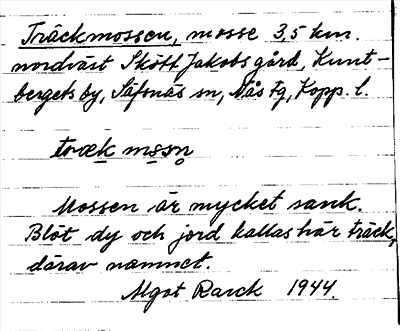 Träckmossen, mosse 3,5 km.
nordväst Skött Jakobs gård, Kunt-
bergets by, Säfsnäs sn, Nås fg, Kopp. l.
træk mssn
Mossen är mycket sank.
Blöt dy och jord kallas här träck,
därav namnet.
Algot Rarck 1944.